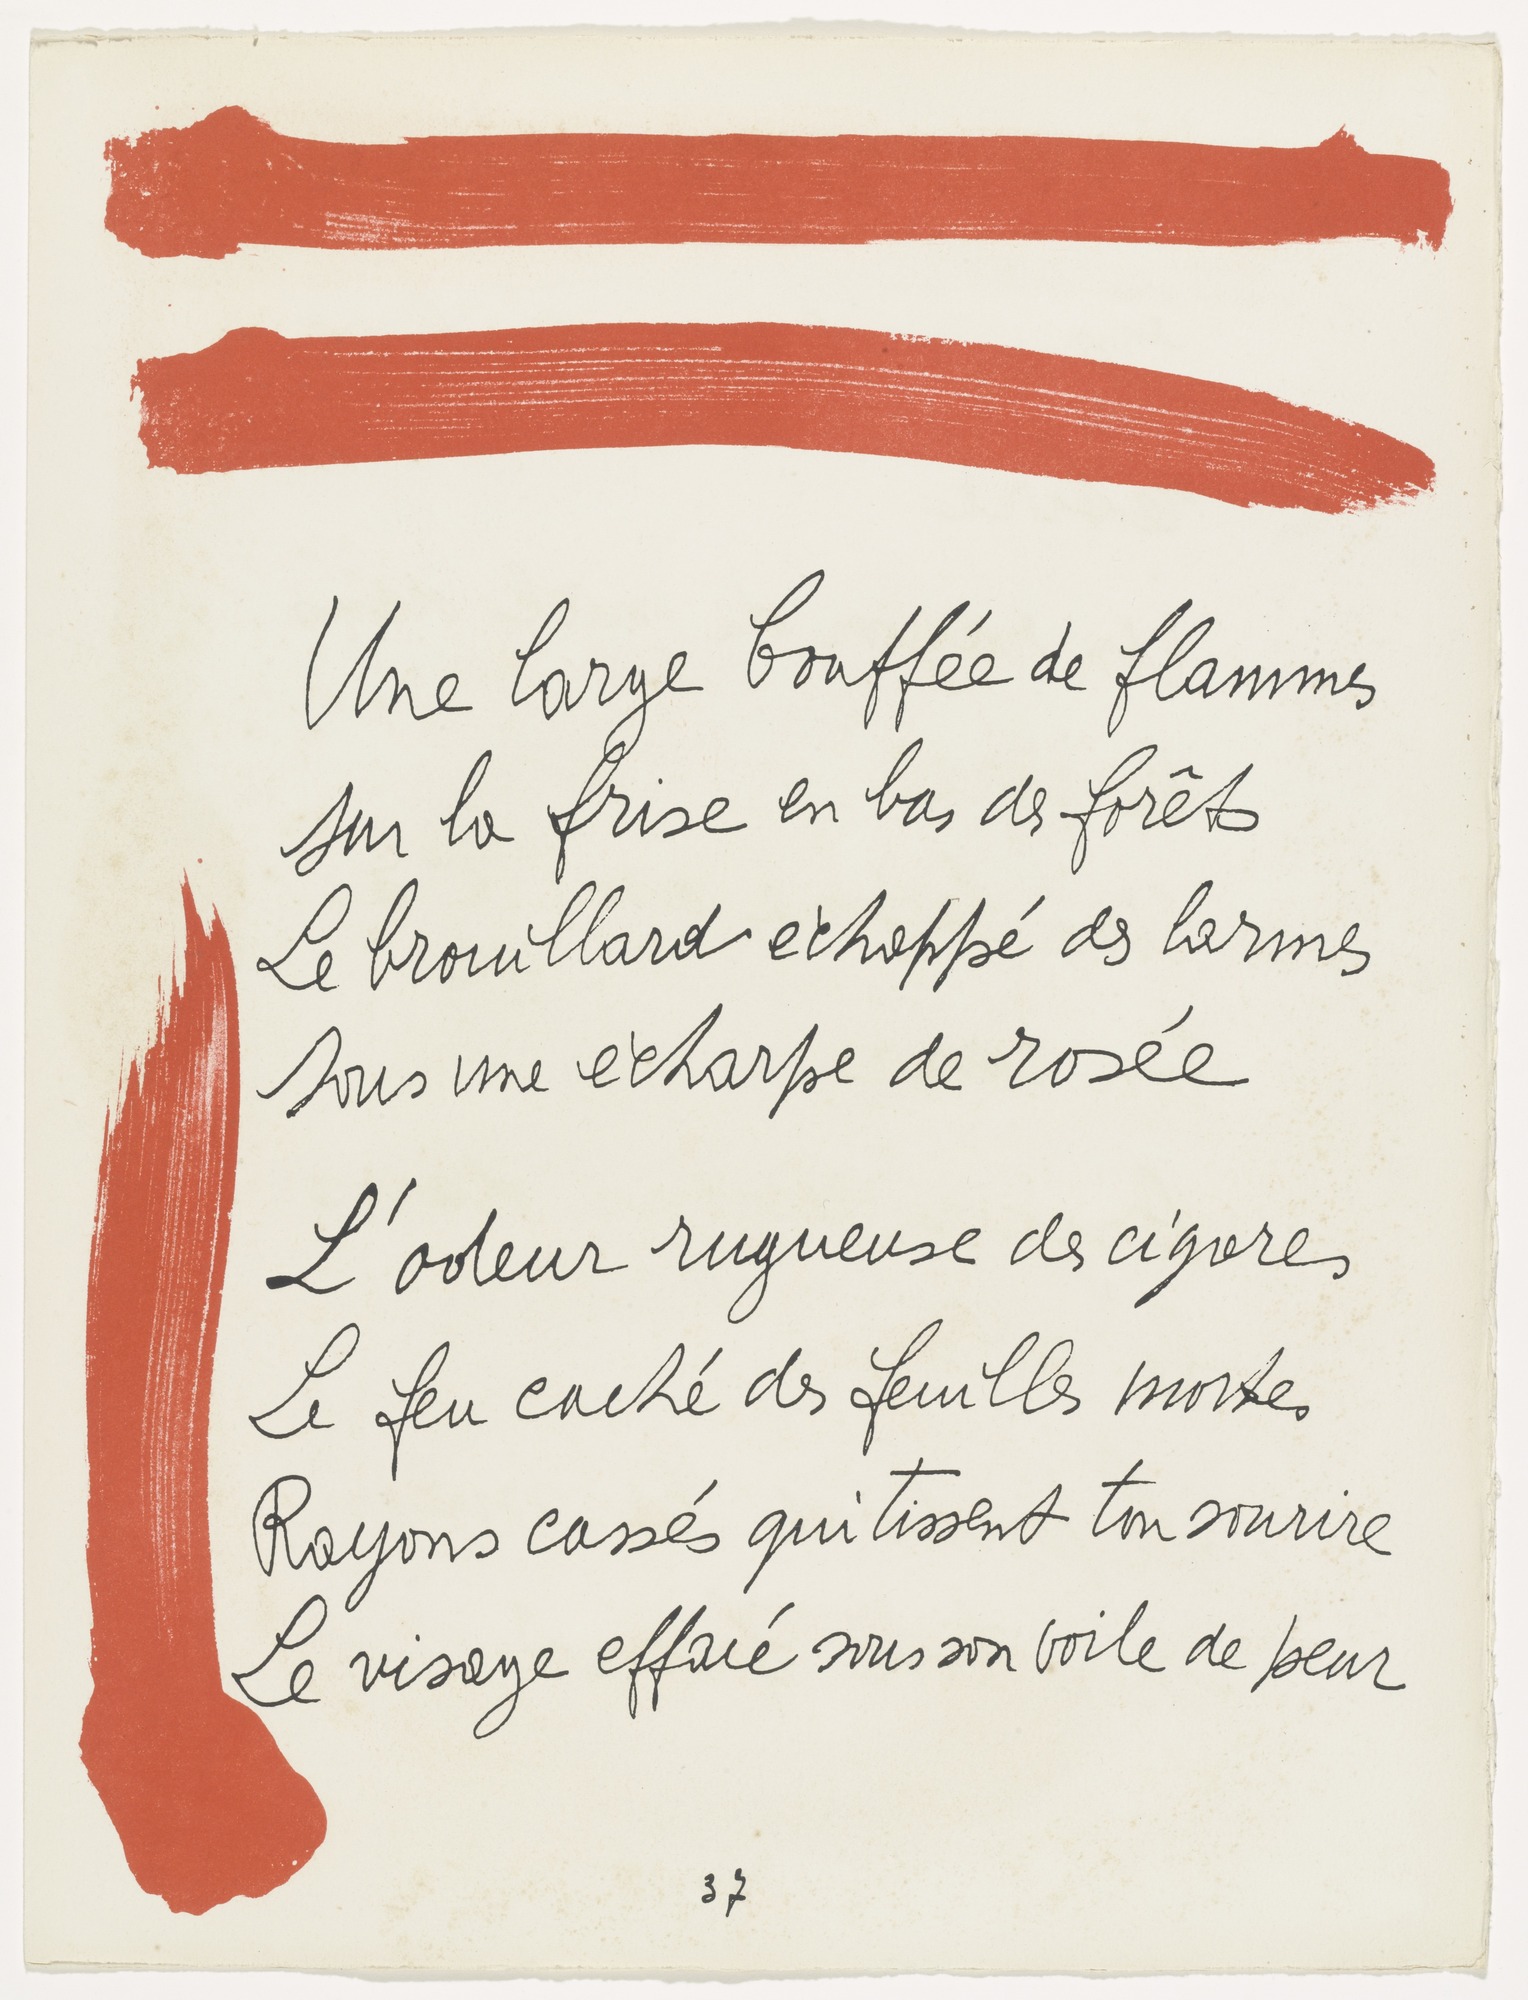 Une large bouffée de flammes
sur la frise en bas des forêts
Le brouillard échappé des larmes
sous une écharpe de rosée
L'odeur rugueuse des cigares
Le feu caché des feuilles mortes
Rayons cassés qui tissent ton sourire
Le visage effacé sous son voile de peur
37